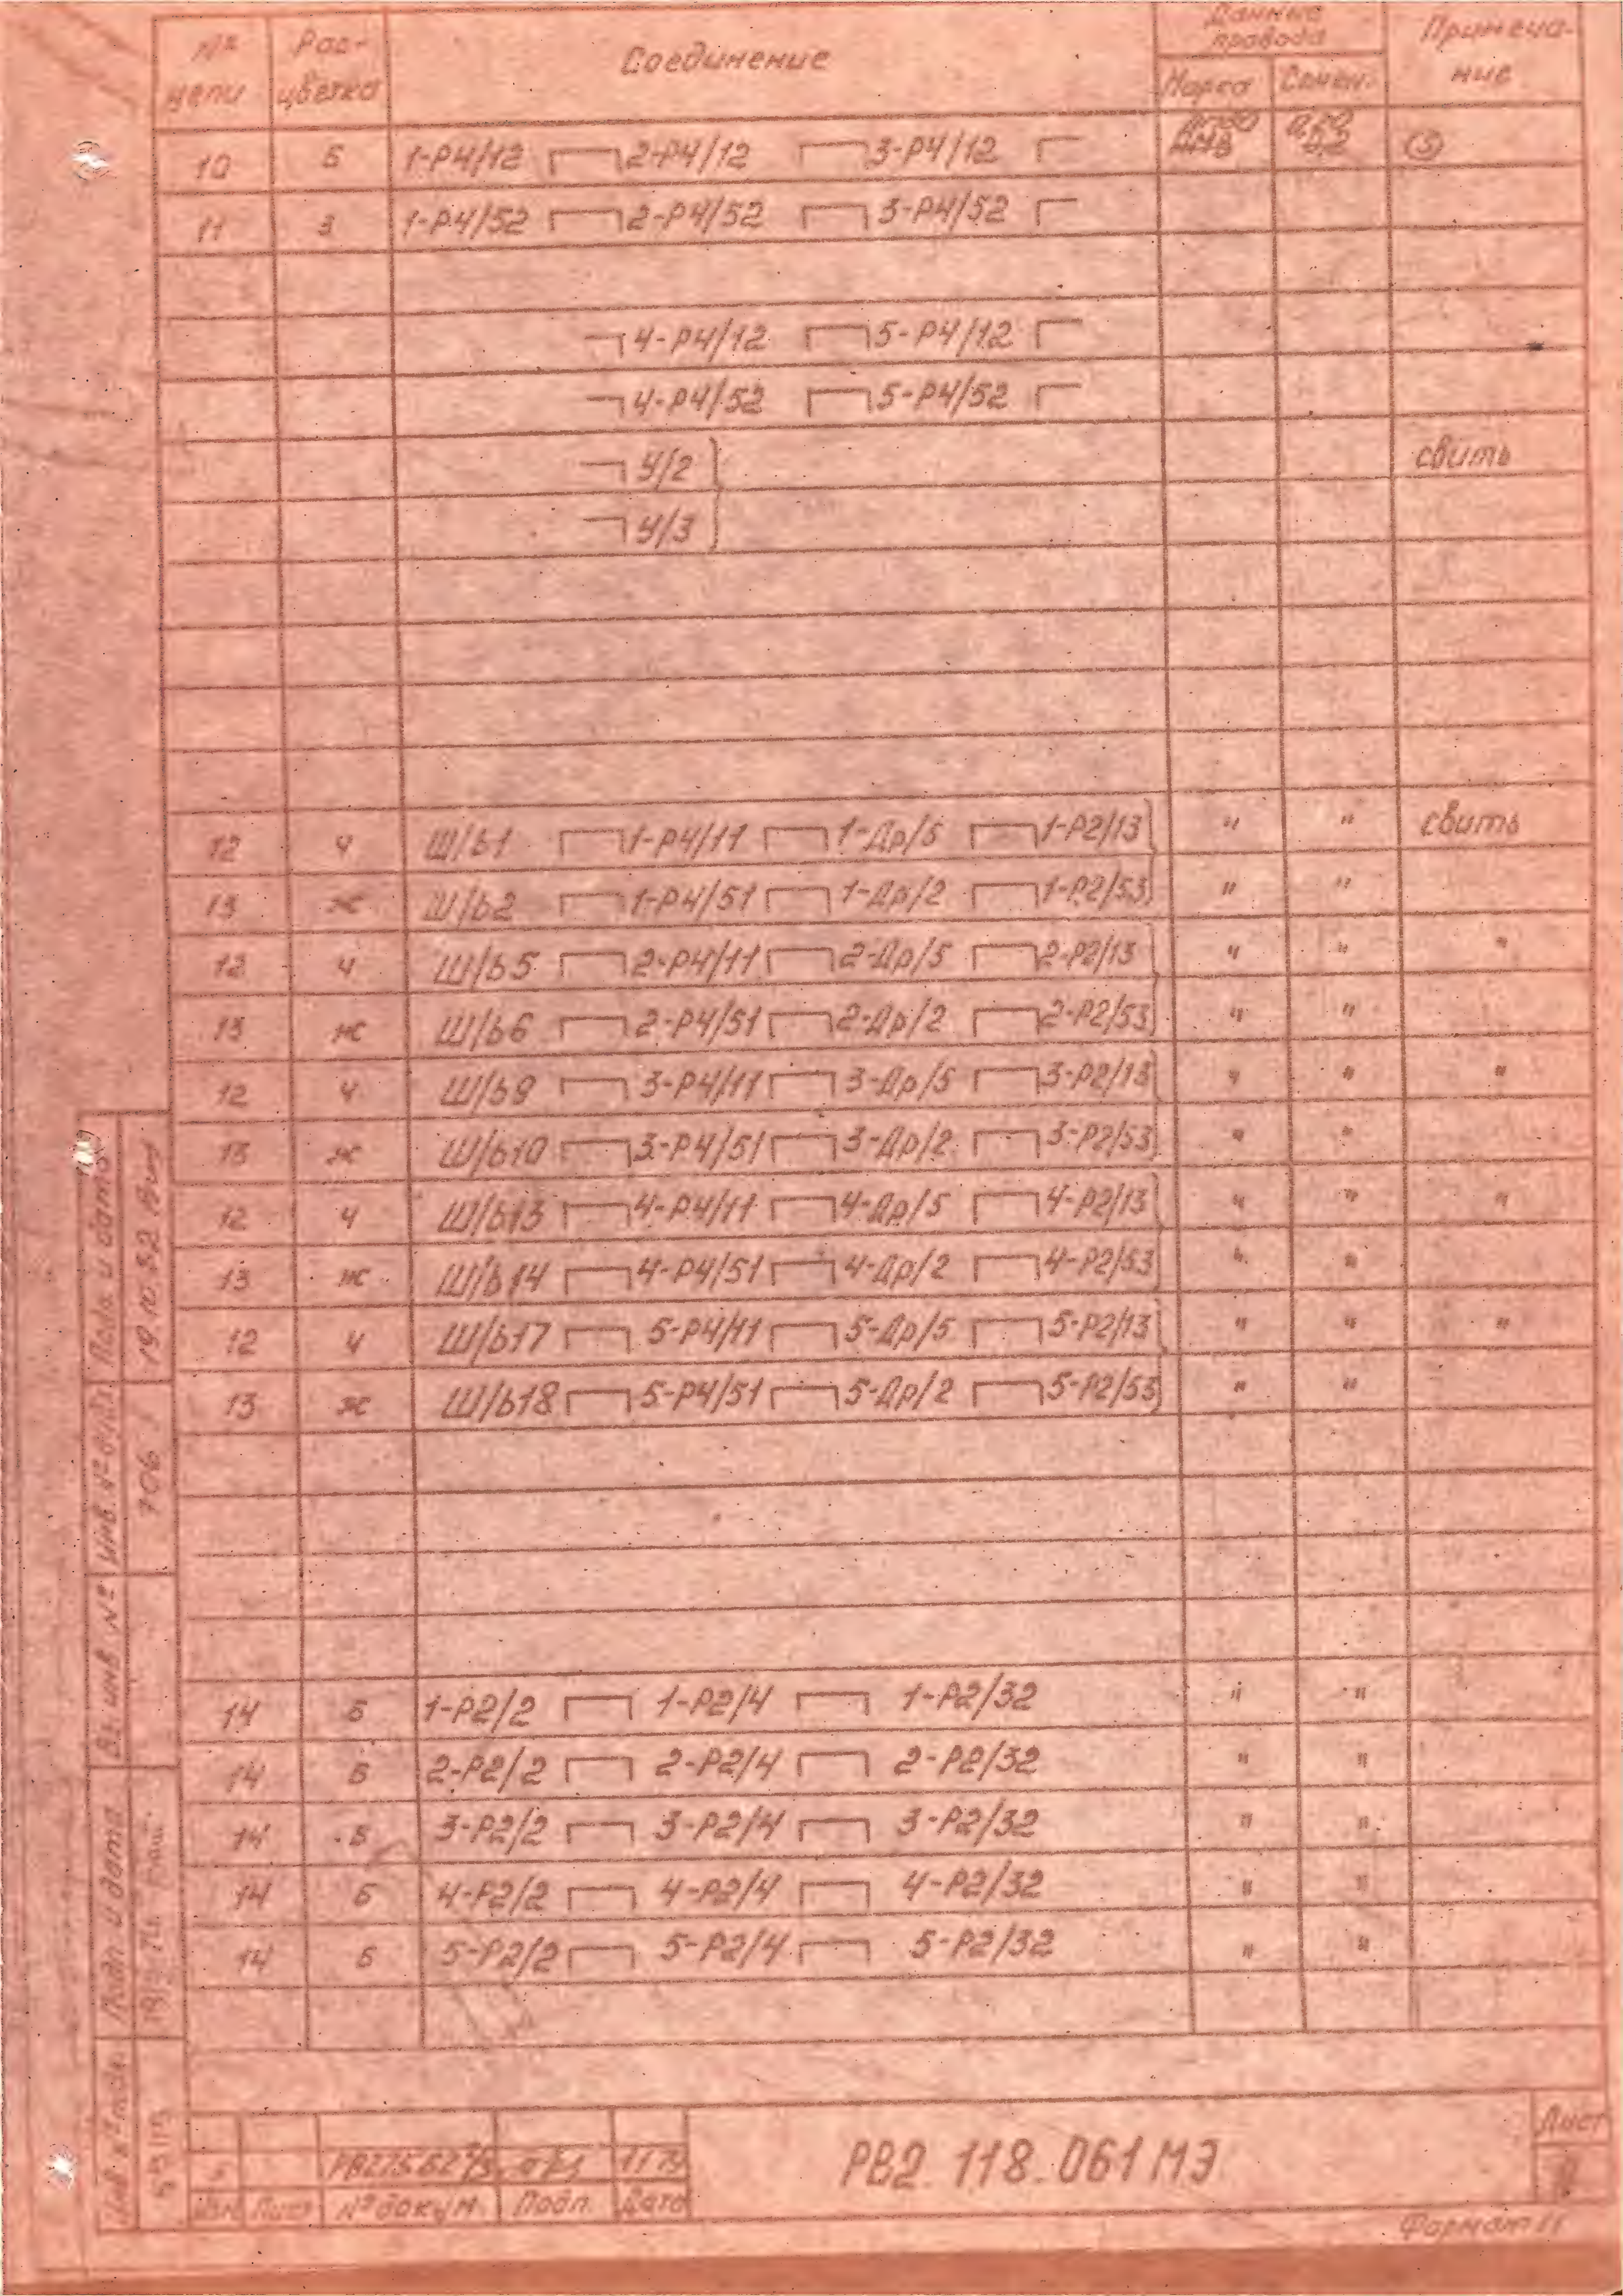 № цепи Рас-цветка Соединение Данные провода Марка Сечен. Примеча-ние
10 Б 1-Р4/12 2-Р4/12 3-Р4/12 0,2 (5)
11 З 1-Р4/52 2-Р4/52 3-Р4/52
4-Р4/12 5-Р4/12
4-Р4/52 5-Р4/52
У/2 } свить
У/3
12 Ч Ш/Б1 1-Р4/11 1-Др/5 1-Р2/13 " " свить
13 Ж Ш/Б2 1-Р4/51 1-Др/2 1-Р2/53 " "
12 Ч Ш/Б5 2-Р4/11 2-Др/5 2-Р2/13 " " "
13 Ж Ш/Б6 2-Р4/51 2-Др/2 2-Р2/53 " "
12 Ч Ш/Б9 3-Р4/11 3-Др/5 3-Р2/13 " " "
13 Ж Ш/Б10 3-Р4/51 3-Др/2 3-Р2/53 " "
12 Ч Ш/Б13 4-Р4/11 4-Др/5 4-Р2/13 " " "
13 Ж Ш/Б14 4-Р4/51 4-Др/2 4-Р2/53 " "
12 Ч Ш/Б17 5-Р4/11 5-Др/5 5-Р2/13 " " "
13 Ж Ш/Б18 5-Р4/51 5-Др/2 5-Р2/53 " "
14 Б 1-Р2/2 1-Р2/4 1-Р2/32 " "
14 Б 2-Р2/2 2-Р2/4 2-Р2/32 " "
14 Б 3-Р2/2 3-Р2/4 3-Р2/32 " "
14 Б 4-Р2/2 4-Р2/4 4-Р2/32 " "
14 Б 5-Р2/2 5-Р2/4 5-Р2/32 " "
Подп. и дата 19.10.82
Инв. № дубл. 706
Вз. инв. №
Подп. и дата
Инв. № подл.
Изм Лист № докум. Подп. Дата
РВ2.118.061МЭ
Лист
Формат 11